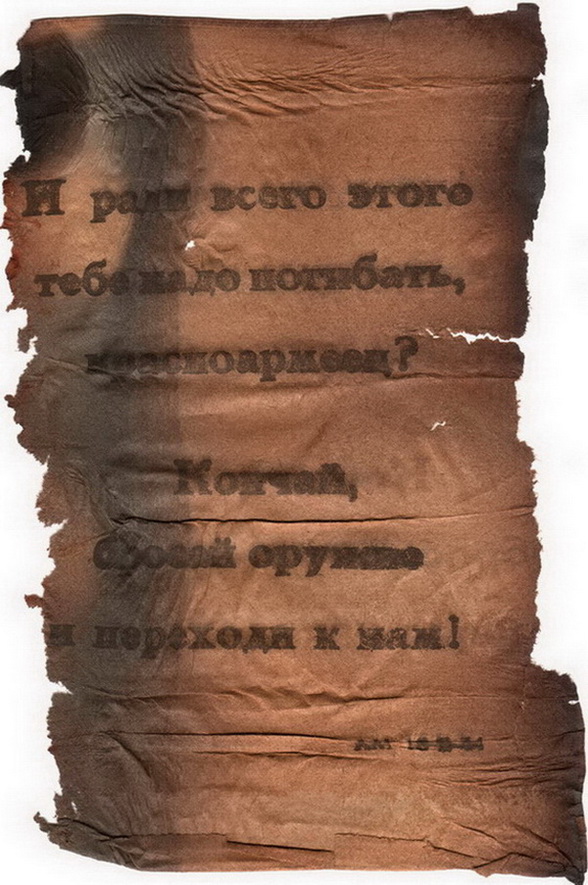 И ради всего этого
тебе надо погибать,
красноармеец?
Кончай,
бросай оружие
и переходи к нам!